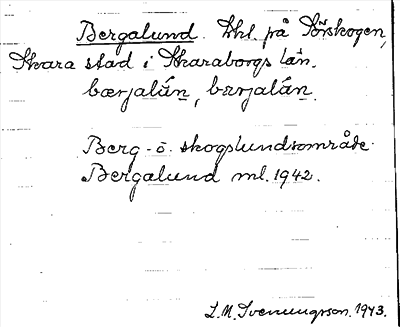 Bergalund. Lhl. på Sörskogen,
Skara stad i Skaraborgs län.
bærjalún, bærjalún.
Berg- o. skogslundsområde.
Bergalund ml. 1942.
L. M. Svenungsson. 1943.